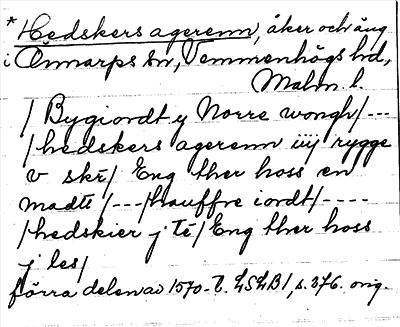 *Hedskers agerenn, åker och äng
i Önnarps sn, Vemmenhögs hd,
Malm. l.
/ Bygiordt y Norre wongh/ ---
/hedskers agerenn iiij rygge
v skr̄/ Eng ther hoss en
madtē /---/hauffre iordt/----
/hedskier j tē/ Eng ther hoss
j les/
förra delen av 1570-t. LSLB1, s. 376. orig.